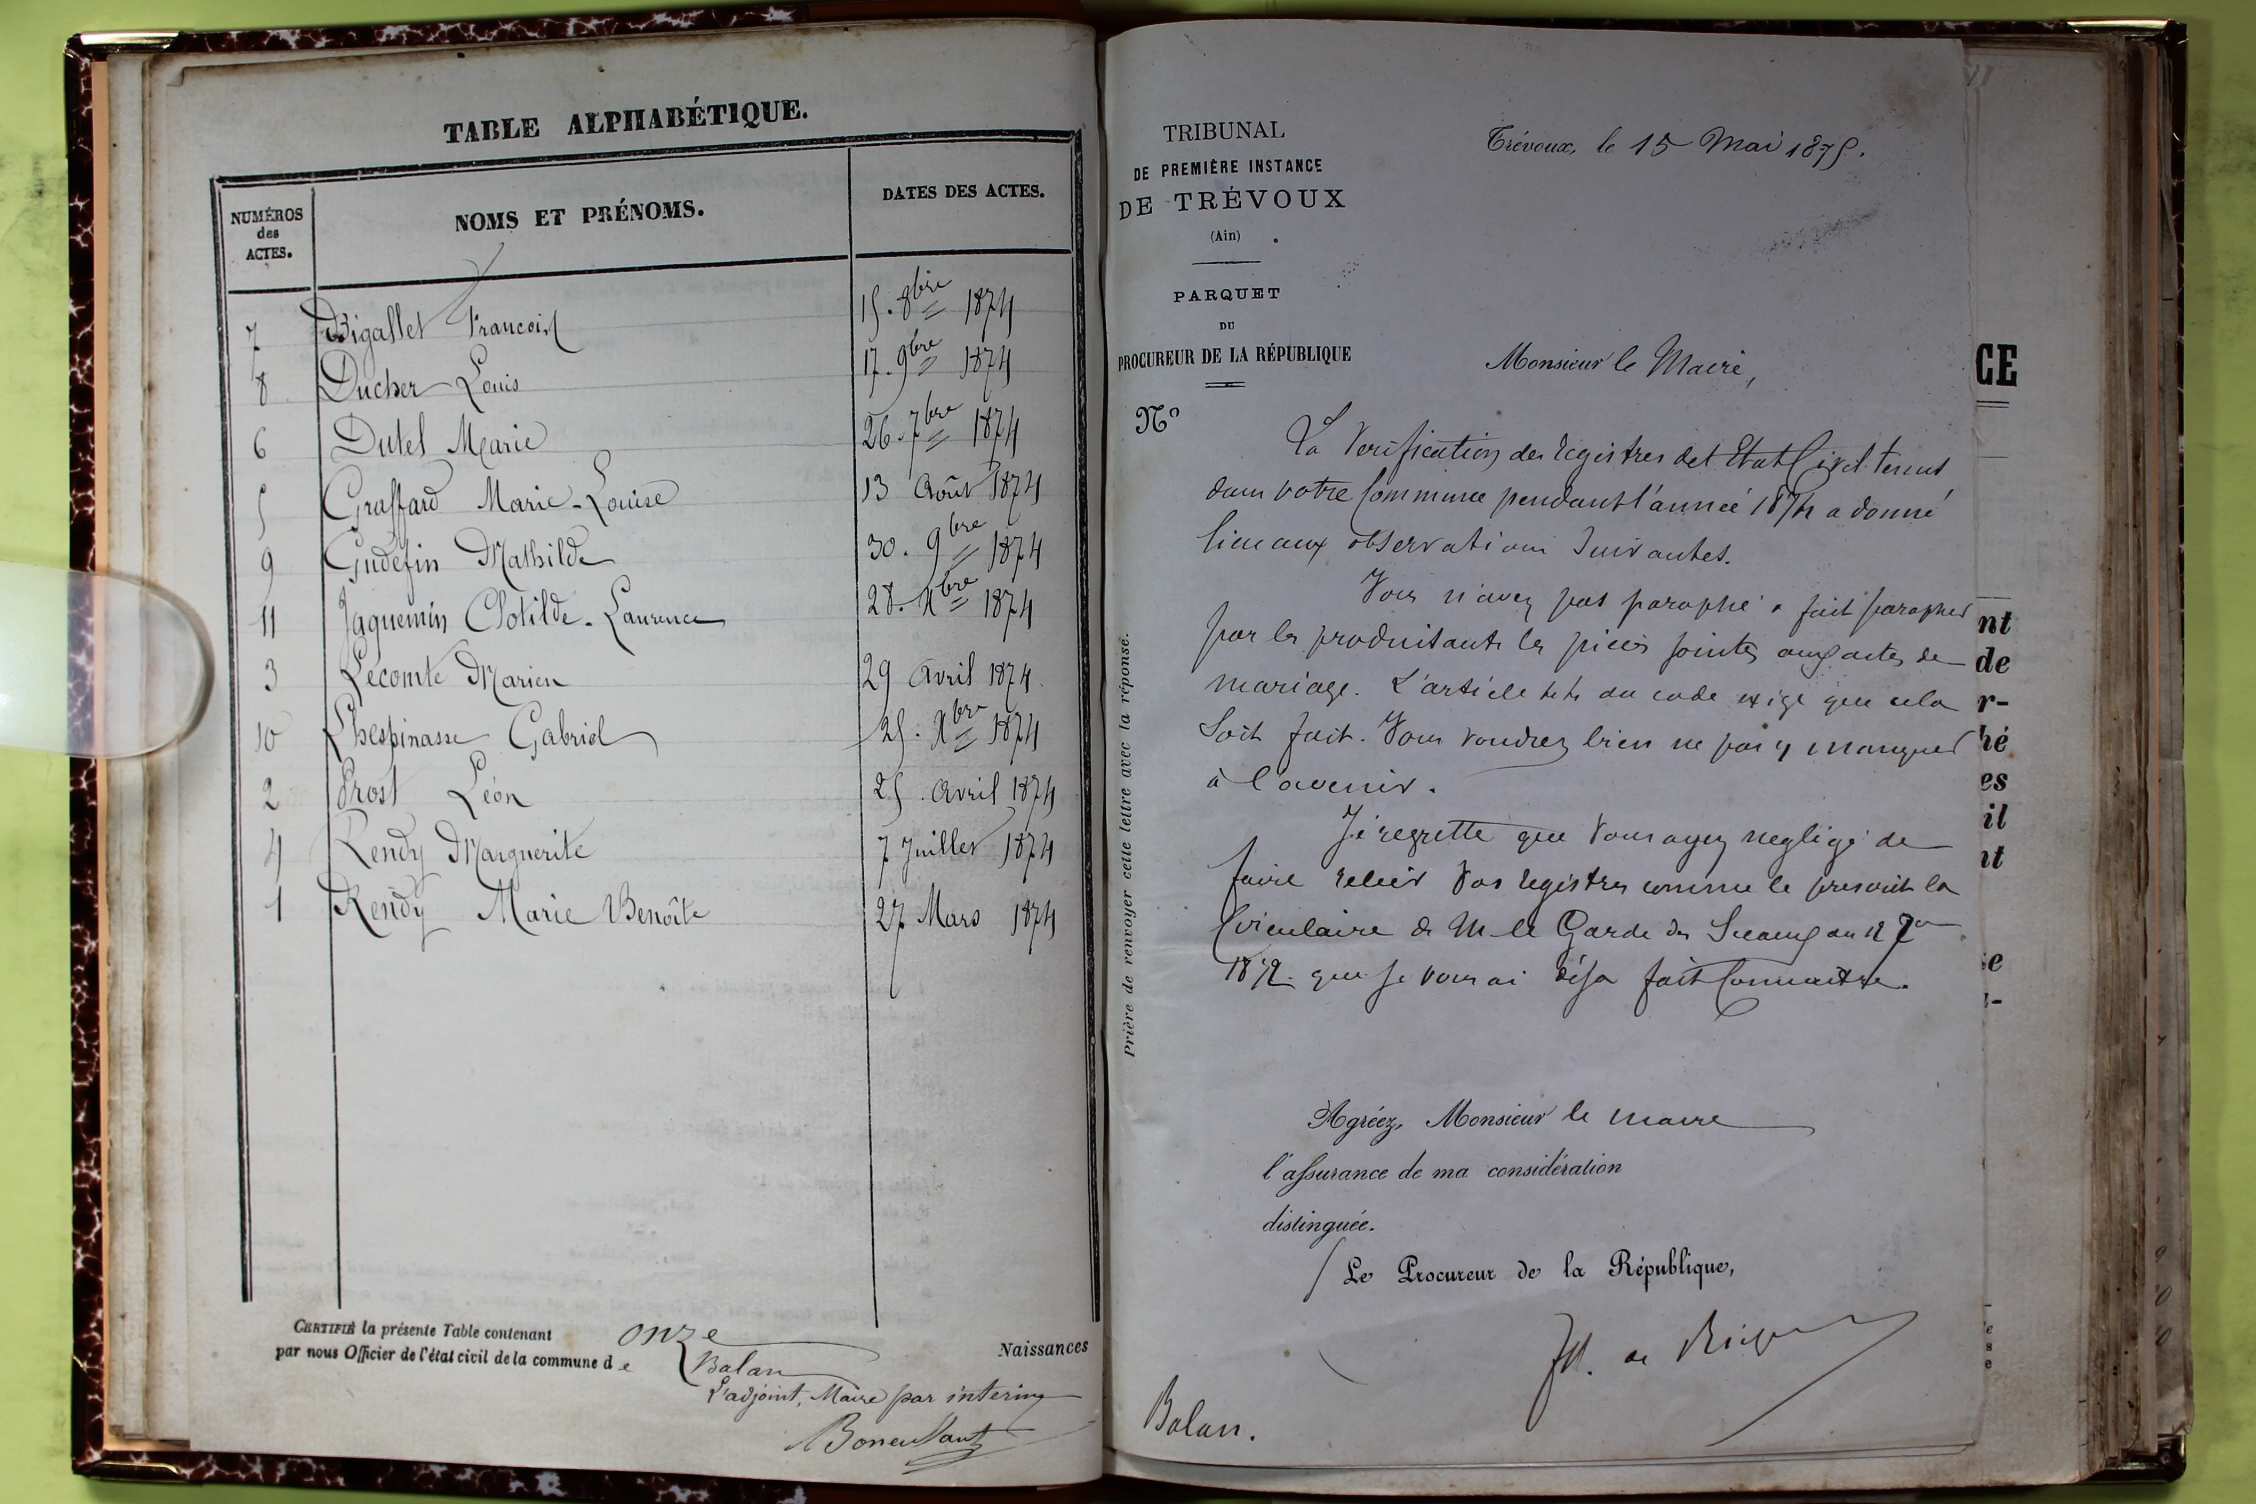 TABLE ALPHABÉTIQUE.
NUMÉROS des ACTES.
NOMS ET PRÉNOMS.
DATES DES ACTES.
7 Bigallet Francois 15. 8bre 1874
8 Ducher Louis 17. 9bre 1874
6 Dutel Marie 26. 7bre 1874
5 Graffard Marie-Louise 13 Août 1874
9 Gudefin Mathilde 30. 9bre 1874
11 Jaquemin Clotilde-Laurence 28. Xbre 1874
3 Lecomte Marien 29 Avril 1874
10 Lhespinasse Gabriel 25. Xbre 1874
2 Prost Léon 25. Avril 1874
4 Rendy Marguerite 7 Juillet 1874
1 Rendy Marie Benoîte 27 Mars 1874
CERTIFIÉ la présente Table contenant onze Naissances
par nous Officier de l'état civil de la commune de Balan
L'adjoint, Maire par interim
TRIBUNAL
DE PREMIÈRE INSTANCE
DE TRÉVOUX
(Ain)
PARQUET
DU
PROCUREUR DE LA RÉPUBLIQUE
No
Prière de renvoyer cette lettre avec la réponse.
Trévoux, le 15 Mai 1875.
Monsieur le Maire,
La Verification des registres de l'Etat Civil tenus
dans votre Commune pendant l'année 1874 a donné
lieu aux observations suivantes.
Vous n'avez pas paraphé & fait parapher
par les produisants les pièces jointes aux actes de
mariage. L'article 44 du code exige que cela
soit fait. Vous voudrez bien ne pas y manquer
à l'avenir.
Je regrette que vous ayez negligé de
faire relier vos registres comme le prescrit la
Circulaire de M le Garde des Sceaux du 12 7bre
1872 que je vous ai déja fait Connaitre.
Agréez, Monsieur le maire
l'assurance de ma considération
distinguée.
Le Procureur de la République,
Balan.
CE
nt
de
r-
hé
es
il
nt
se